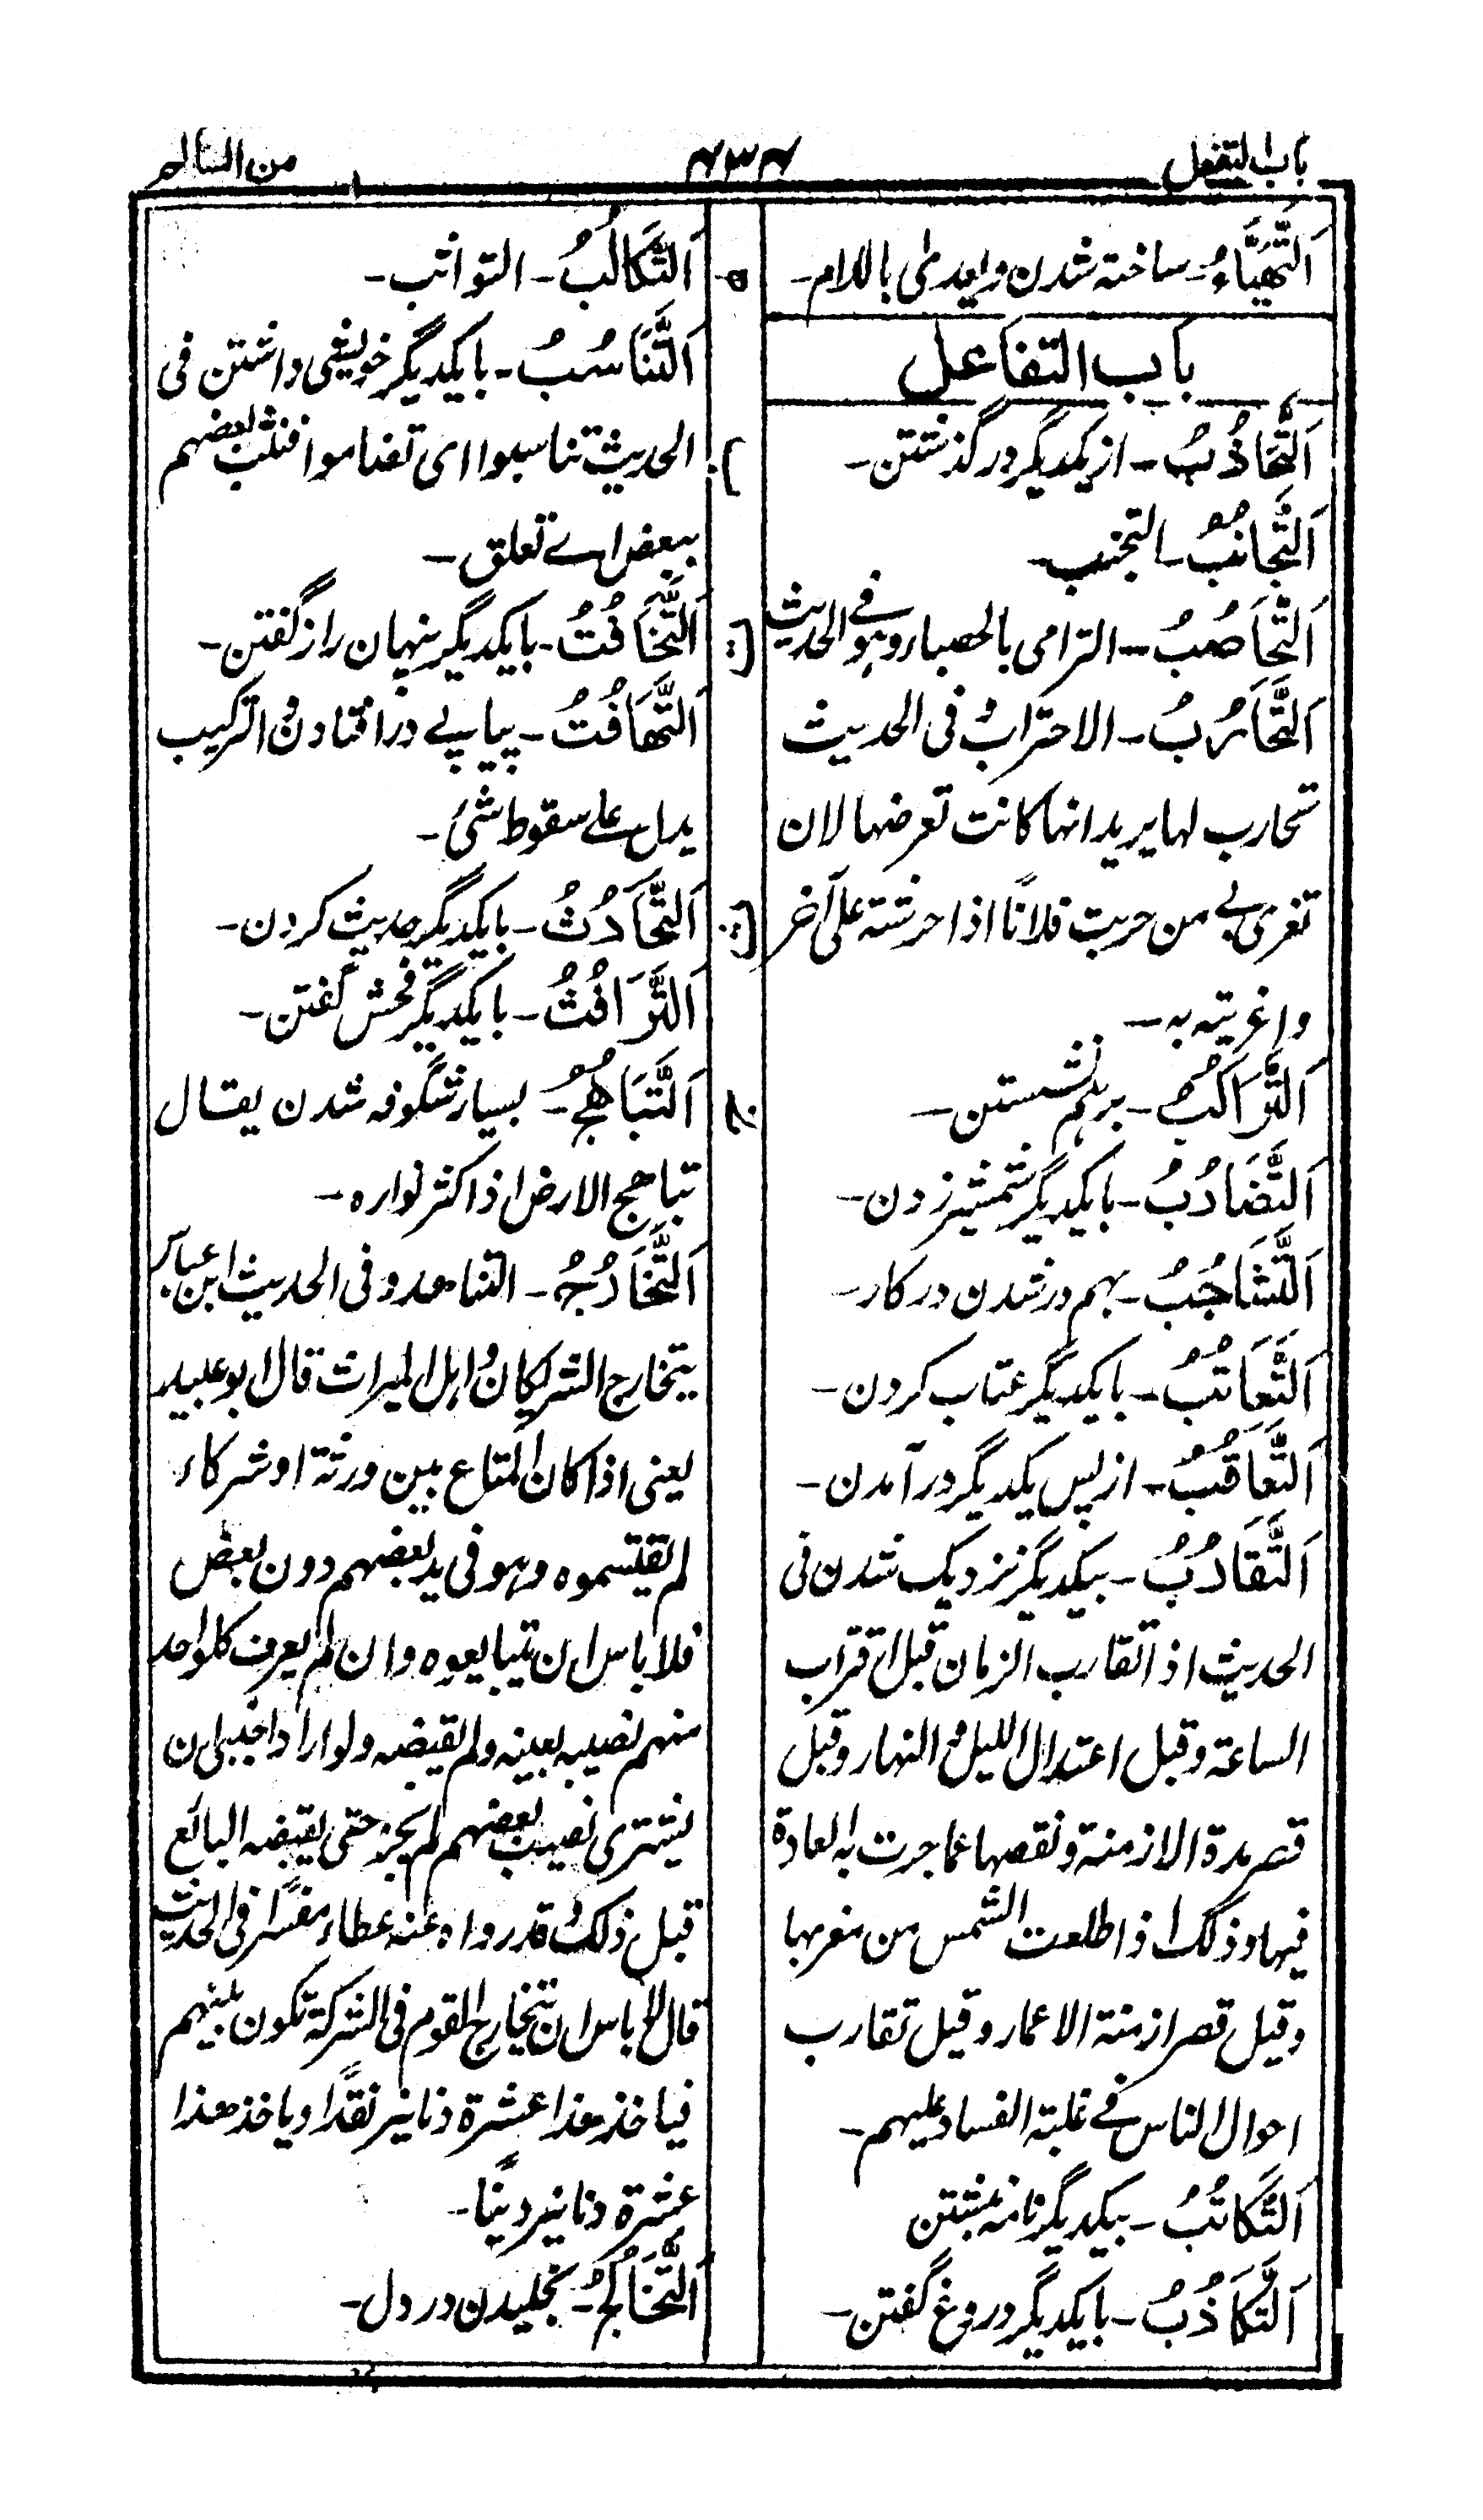 باب التفعل
۶۳۶
من السالم
اَلتَّهَيُّاءُ - ساخته شدن ويعدى باللام -
باب التفاعل
اَلتَّجَاذُبُ - از يكديگر درگذشتن -
اَلتَّجَانُبُ - التجنب -
اَلتَّحَاصُبُ - الترامى بالحصباء وہو فے الحديث
اَلتَّحَارُبُ - الاحتراب و فى الحديث
تحارب لها يريد انها كانت تعرضها لان
تغرى بے من حربت فلانًا اذا حرشته على آخر
واغريته به -
اَلتَّرَاكُبُ - برہم نشستن -
اَلتَّضَارُبُ - بايكديگر شمشير زدن -
اَلتَّشَاجُبُ - بہم در شدن در كار -
اَلتَّعَاتُبُ - بايكديگر عتاب كردن -
اَلتَّعَاقُبُ - از پس يكديگر درآمدن -
اَلتَّقَارُبُ - بيكديگر نزديك شدن فى
الحديث اذا تقارب الزمان قيل اقتراب
الساعة وقيل اعتدال الليل و النهار وقيل
قصر مدة الازمنة ونقصها عما جرت به العادة
فيها وذلك اذا طلعت الشمس من مغربها
وقيل قصر ازمنة الاعمار وقيل تقارب
احوال الناس فے غلبة الفساد عليهم -
اَلتَّكَاتُبُ - بيكديگر نامه نبشتن
اَلتَّكَاذُبُ - بايكديگر دروغ گفتن -
اَلتَّكَالُبُ - التواثب -
اَلتَّنَاسُبُ - بايكديگر خويشى داشتن فى
الحديث تناسبوا اى تضاموا فنشب بعضهم
ببعض اے تعلق -
ت
اَلتَّخَافُتُ - بايكديگر پنهان راز گفتن -
اَلتَّهَافُتُ - پياپے درافتادن و التركيب
يدل علے سقوط شئ -
ث
اَلتَّحَادُثُ - بايكديگر حديث كردن -
اَلتَّرَافُثُ - بايكديگر فحش گفتن -
ج
اَلتَّبَاهُجُ - بسيار شگوفه شدن يقال
تباهج الارض اذا كثر نواره -
اَلتَّخَارُجُ - التناهد و فى الحديث ابن عباس
يتخارج الشريكان و اہل الميراث قال ابو عبيد
يعنى اذا كان المتاع بين ورثة او شركاء
لم يقتسموه وہو فى يد بعضهم دون بعض
فلا باس ان يتبايعوه وان لم يعرف كل واحد
منهم نصيبه بعينه ولم يقبضه ولو اراد اجنبى ان
يشترى نصيب بعضهم لم يجز حتى يقبضه البائع
قبل ذلك و قد رواه عنه عطاء مفسرا فى الحديث
قال لا باس ان يتخارج القوم فى الشركة تكون بينهم
فياخذ هذا عشرة دنانير نقدًا وياخذ هذا
عشرة دنانير دينًا -
اَلتَّخَالُجُ - بخليدن در دل -